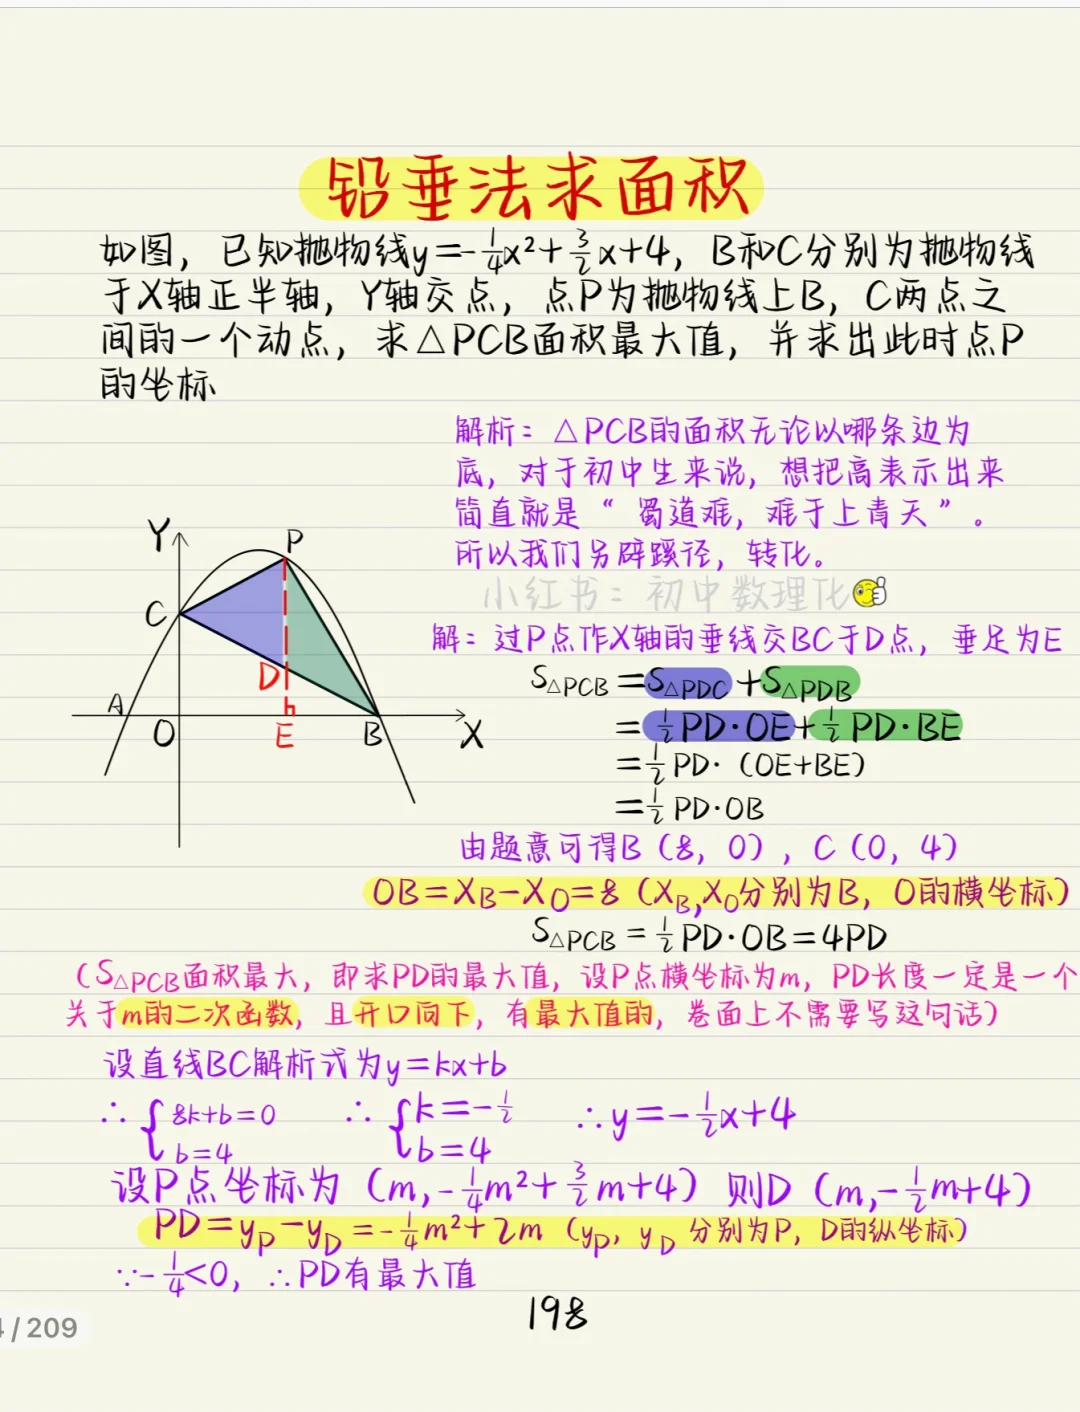 铅垂法求面积
如图，已知抛物线y=-1/4x²+3/2x+4，B和C分别为抛物线
于X轴正半轴，Y轴交点，点P为抛物线上B，C两点之
间的一个动点，求△PCB面积最大值，并求出此时点P
的坐标
解析：△PCB的面积无论以哪条边为
底，对于初中生来说，想把高表示出来
简直就是“蜀道难，难于上青天”。
所以我们另辟蹊径，转化。
小红书：初中数理化
Y
P
C
D
A
O
E
B
X
解：过P点作X轴的垂线交BC于D点，垂足为E
S△PCB=S△PDC+S△PDB
=1/2PD·OE+1/2PD·BE
=1/2PD·(OE+BE)
=1/2PD·OB
由题意可得B（8，0），C（0，4）
OB=XB-XO=8（XB,XO分别为B，O的横坐标）
S△PCB=1/2PD·OB=4PD
（S△PCB面积最大，即求PD的最大值，设P点横坐标为m，PD长度一定是一个
关于m的二次函数，且开口向下，有最大值的，卷面上不需要写这句话）
设直线BC解析式为y=kx+b
∴{8k+b=0 ∴{k=-1/2 ∴y=-1/2x+4
b=4 b=4
设P点坐标为（m,-1/4m²+3/2m+4）则D（m,-1/2m+4）
PD=yP-yD=-1/4m²+2m（yP，yD分别为P，D的纵坐标）
∵-1/4<0，∴PD有最大值
198
/209